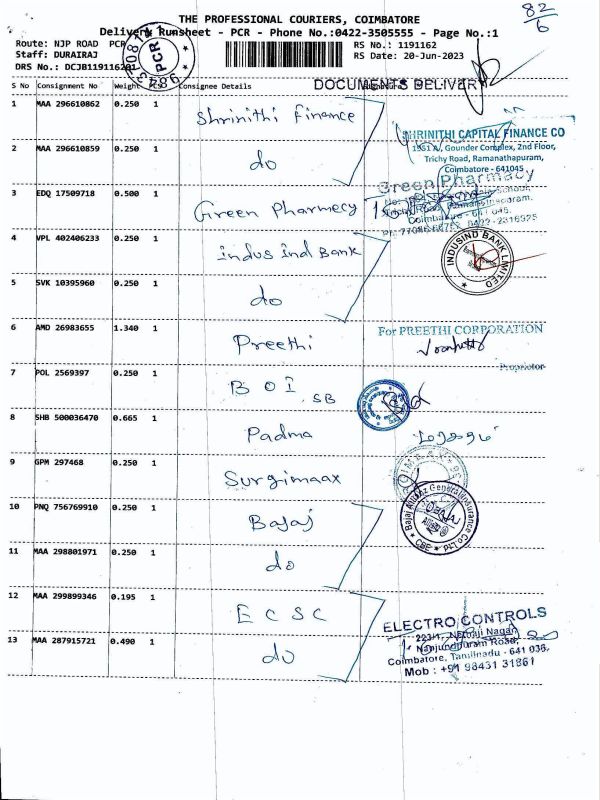 82
6
THE PROFESSIONAL COURIERS, COIMBATORE
Delivery Runsheet - PCR - Phone No.:0422-3505555 - Page No.:1
Route: NJP ROAD PCR
RS No.: 1191162
Staff: DURAIRAJ
RS Date: 20-Jun-2023
DRS No.: DCJB119116201
PCR
S No Consignment No Weight PCS Consignee Details
DOCUMENTS DELIVERY
1 MAA 296610862 0.250 1 Shrinithi Finance
SHRINITHI CAPITAL FINANCE CO
1951 A, Gounder Complex, 2nd Floor,
Trichy Road, Ramanathapuram,
Coimbatore - 641045
2 MAA 296610859 0.250 1 do
3 EDQ 17509718 0.500 1 Green Pharmecy
Green Pharmacy
4 VPL 402406233 0.250 1 Indus Ind Bank
INDUSIND BANK LIMITED
5 SVK 10395960 0.250 1 do
6 AMD 26983655 1.340 1 Preethi
For PREETHI CORPORATION
Proprietor
7 POL 2569397 0.250 1 B O I SB
8 SHB 500036470 0.665 1 Padma
9 GPM 297468 0.250 1 Surgimaax
10 PNQ 756769910 0.250 1 Bajaj
Bajaj Allianz General Insurance Co
CBE
11 MAA 298801971 0.250 1 do
12 MAA 299899346 0.195 1 E C S C
ELECTRO CONTROLS
223/1, Netaji Nagar
Nanjundapuram Road,
Coimbatore, Tamilnadu - 641 036.
Mob : +91 98431 31861
13 MAA 287915721 0.490 1 do